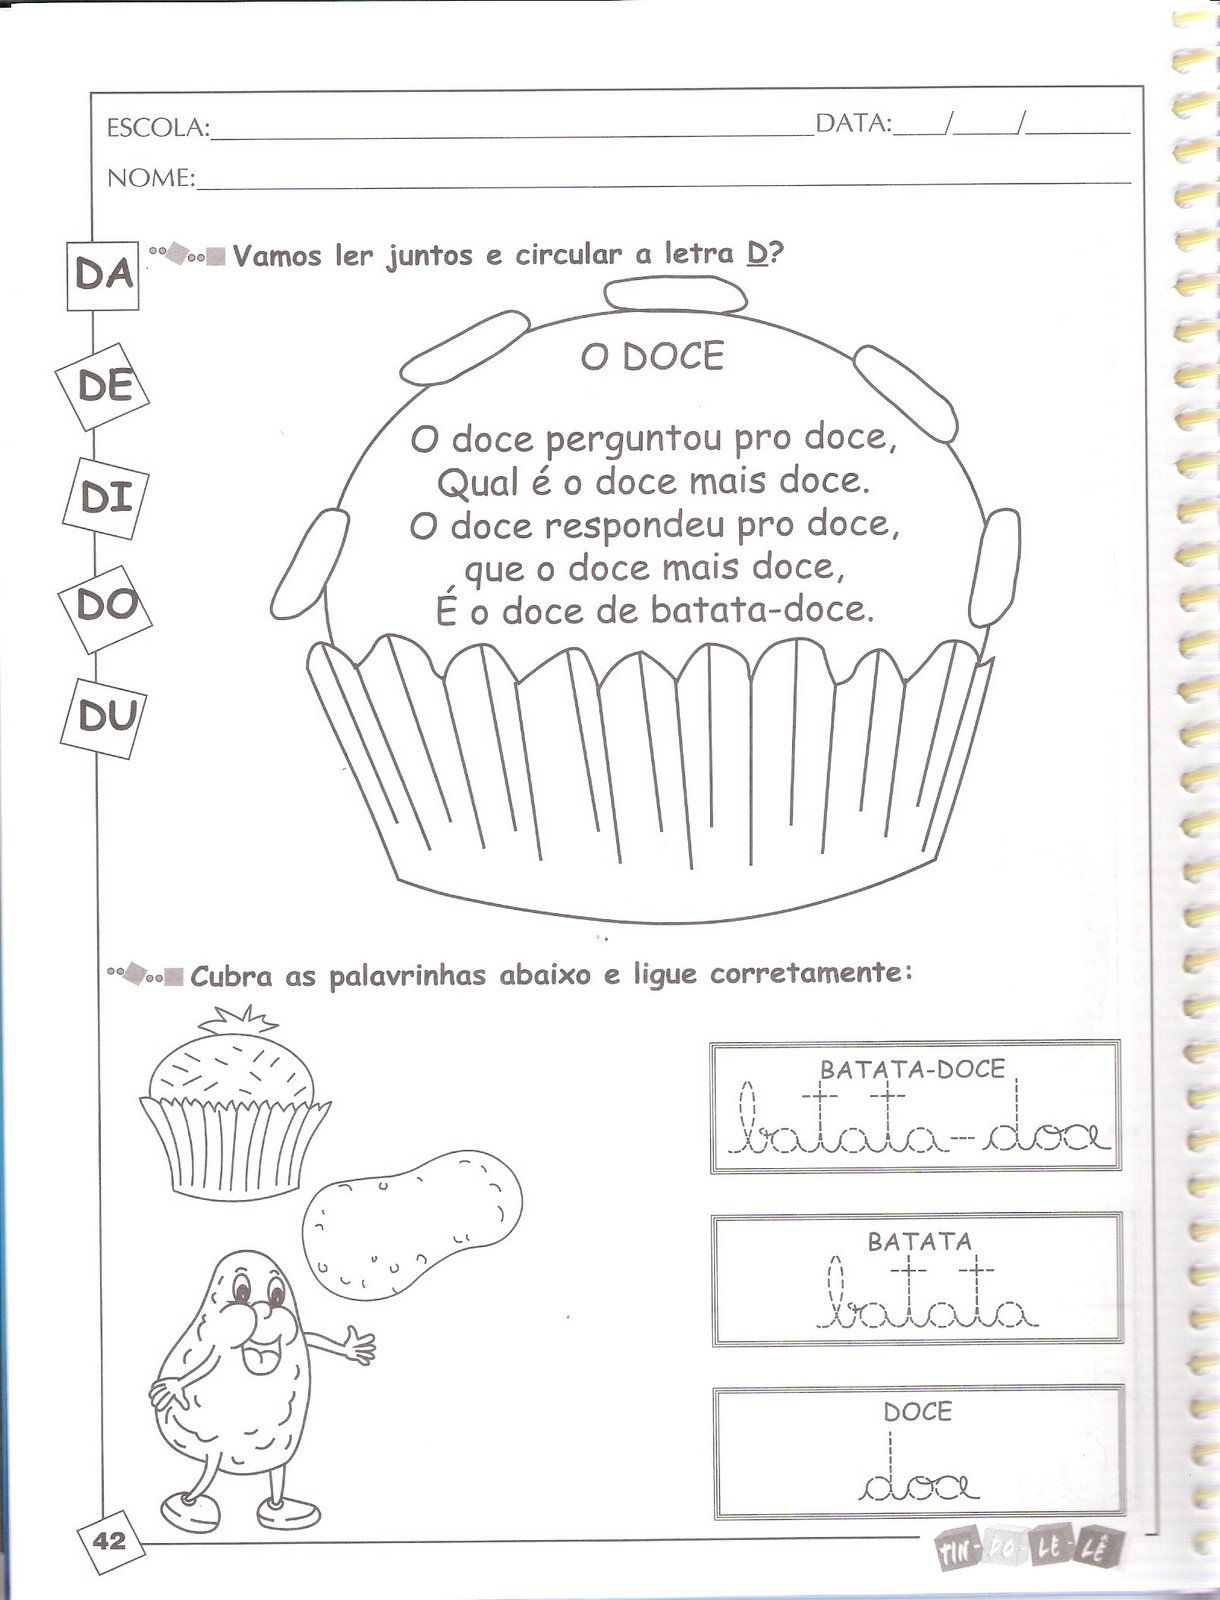 ESCOLA: DATA: / /
NOME:
Vamos ler juntos e circular a letra D?
DA
DE
DI
DO
DU
O DOCE
O doce perguntou pro doce,
Qual é o doce mais doce.
O doce respondeu pro doce,
que o doce mais doce,
É o doce de batata-doce.
Cubra as palavrinhas abaixo e ligue corretamente:
BATATA-DOCE
batata-doce
BATATA
batata
DOCE
doce
42
TIN-DO-LE-LÊ